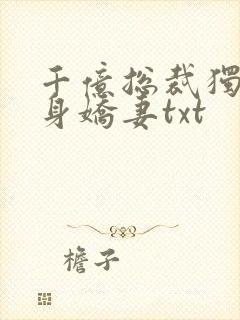 千億総裁獨
身嬌妻txt
檐子